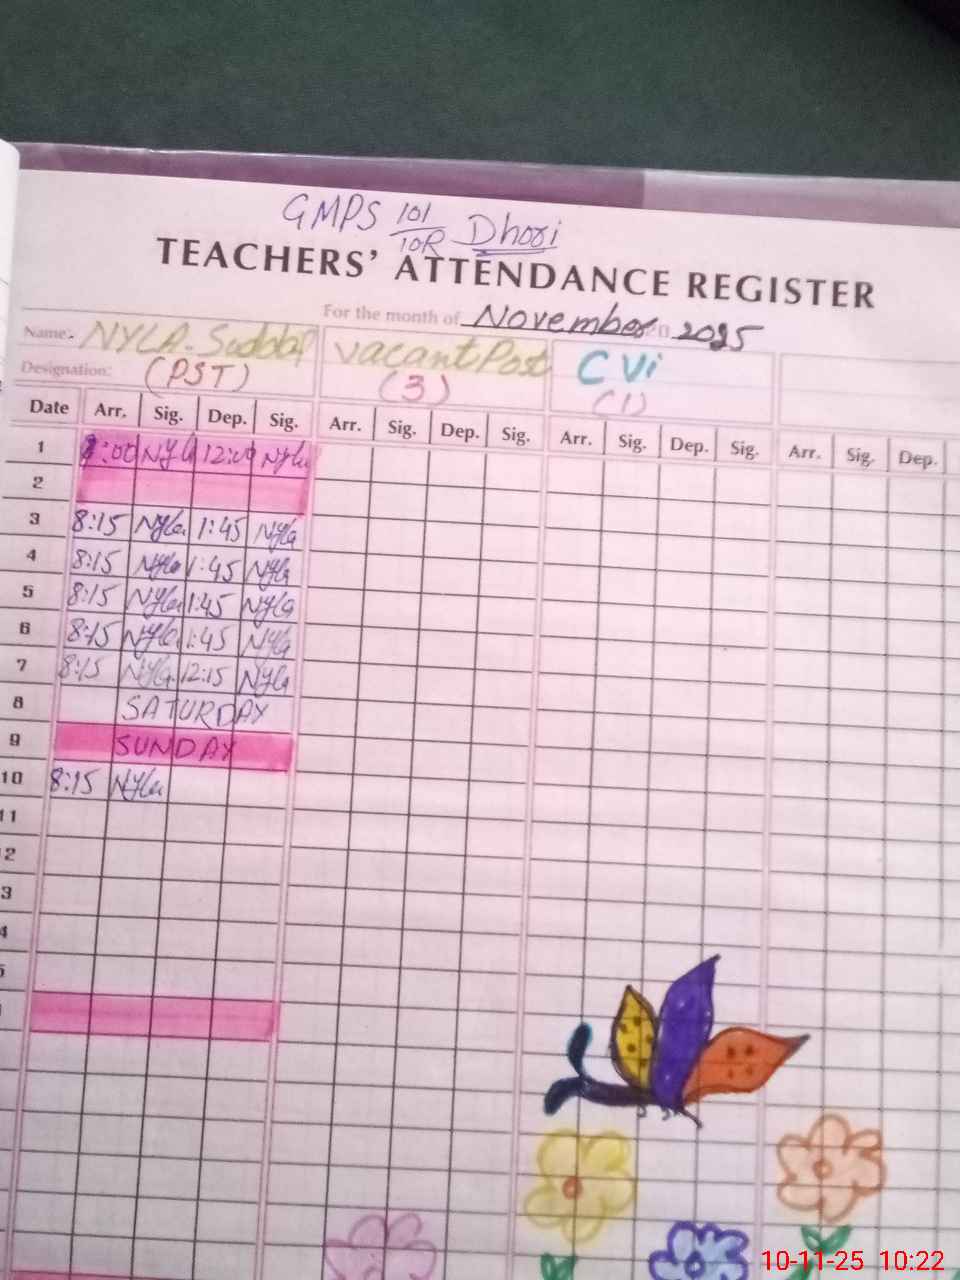 GMPS 101/10R Dhori
TEACHERS' ATTENDANCE REGISTER
For the month of November 2025
Name: NYLA Vacant Post C Vi
Designation: (PST) (3) (1)
Date Arr. Sig. Dep. Sig. Arr. Sig. Dep. Sig. Arr. Sig. Dep. Sig. Arr. Sig. Dep.
1 8:00 Nyla 12:00 Nyla
2
3 8:15 Nyla 1:45 Nyla
4 8:15 Nyla 1:45 Nyla
5 8:15 Nyla 1:45 Nyla
6 8:15 Nyla 1:45 Nyla
7 8:15 Nyla 12:15 Nyla
8 SATURDAY
9 SUNDAY
10 8:15 Nyla
11
2
3
4
5
10-11-25 10:22